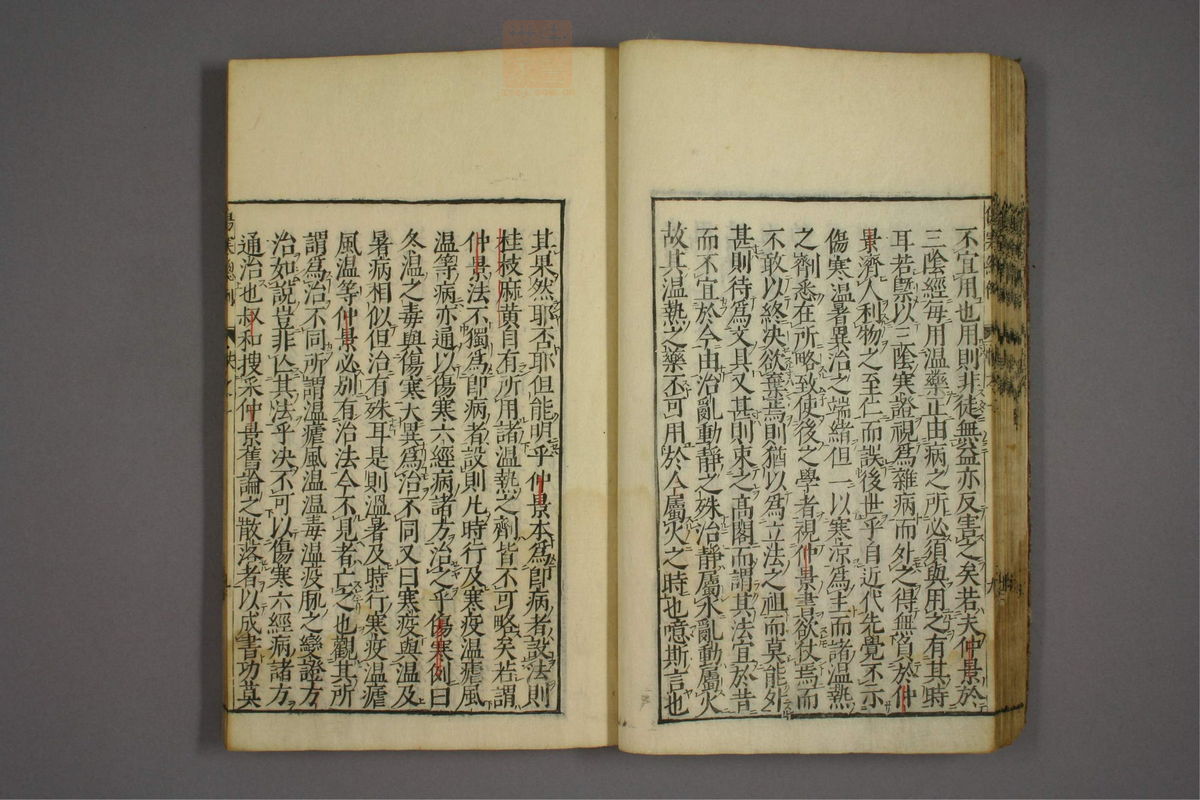 不宜用也用則非徒無益亦反害之矣若夫仲景於
三陰經每用温藥正由病之所必須與用之有其時
耳若槩以三陰寒證視爲雜病而外之得無負於仲
景濟人利物之至仁而誤後世乎自近代先覺不示
傷寒温暑異治之端緒但一以寒凉爲主而諸温熱
之劑悉在所略致使後之學者視仲景書欲仗焉而
不敢以終决欲棄焉則猶以爲立法之祖而莫能外
甚則待爲文具又甚則束之高閣而謂其法宜於昔
而不宜於今由治亂動靜之殊治靜屬水亂動屬火
故其温熱之藥不可用於今屬火之時也噫斯言也
其果然耶否耶但能明乎仲景本爲卽病者設法則
桂枝麻黄自有所用諸温熱之劑皆不可略矣若謂
仲景法不獨爲卽病者設則凡時行及寒疫温瘧風
温等病亦通以傷寒六經病諸方治之乎傷寒例曰
冬温之毒與傷寒大異爲治不同又曰寒疫與温及
暑病相似但治有殊耳是則温暑及時行寒疫温瘧
風温等仲景必别有治法今不見者亡之也觀其所
謂爲治不同所謂温瘧風温温毒温疫脉之變證方
治如說豈非亾其法乎决不可以傷寒六經病諸方
通治也叔和搜采仲景舊論之散落者以成書功莫